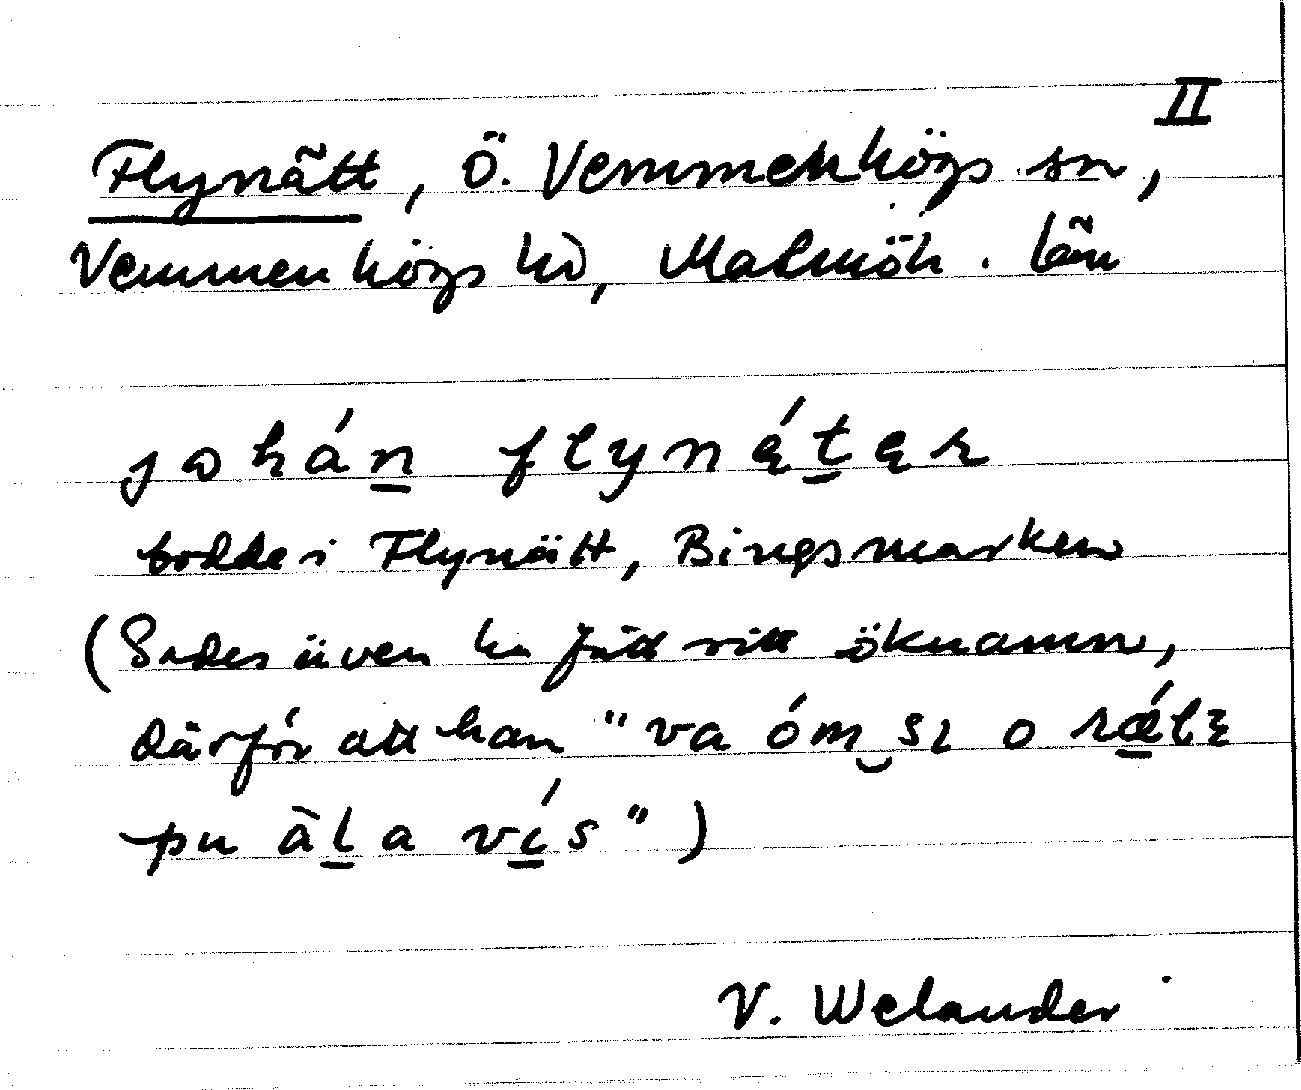 II
Flynätt, Ö. Vemmenhögs sn,
Vemmenhögs hd, Malmöh. län
johán flynę́tęr
bodde i Flynätt, Bingsmarken
(Sades även ha fått sitt öknamn,
därför att han "va óm sɩ o rǽlɛ
pu āla vís")
V. Welander